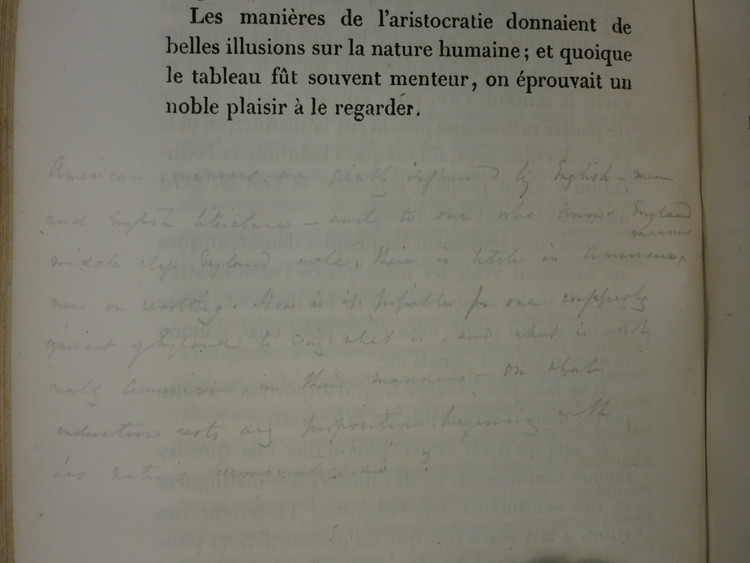 Les manières de l'aristocratie donnaient de
belles illusions sur la nature humaine; et quoique
le tableau fût souvent menteur, on éprouvait un
noble plaisir à le regarder.
American manners are greatly influenced by English-men
and English literature – and to one who knows England
manners
middle class England well, there is little in American
new or revolting. How is it possible for one
ignorant of England to say what is, and what is not
really American, in their manners – on what
inductions rests any proposition beginning with
Les nations démocratiques ?